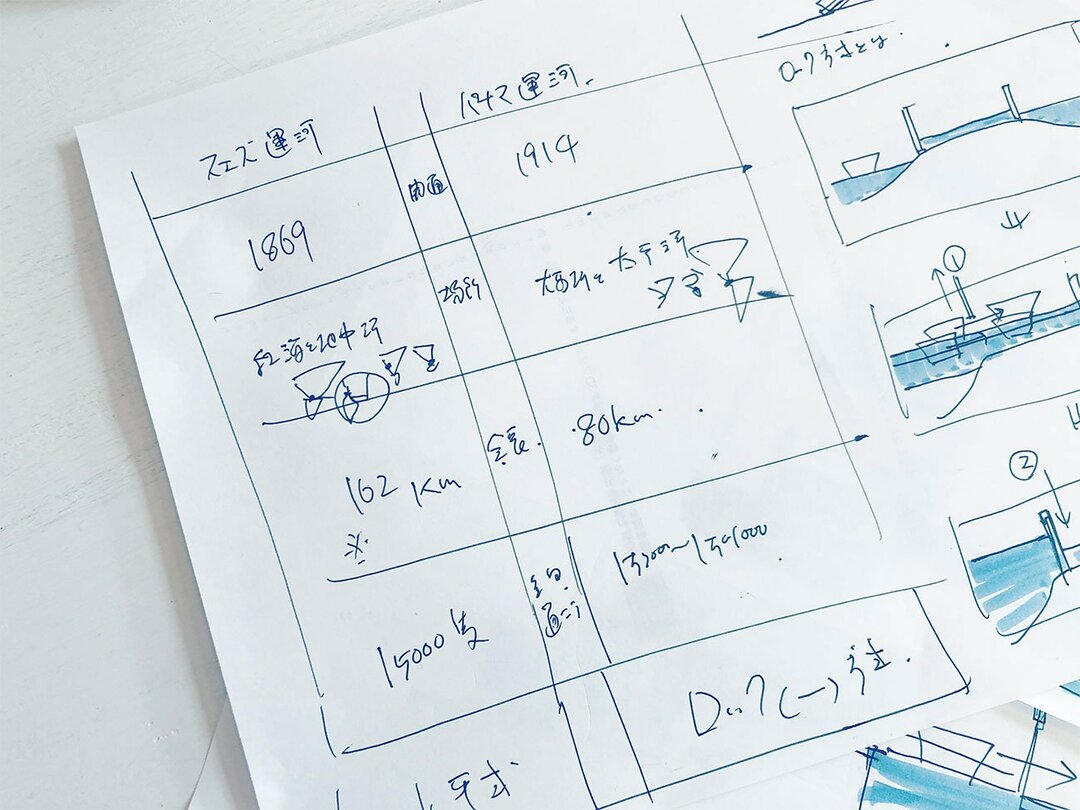 スエズ運河
パナマ運河
1869
開通
1914
紅海と地中海
場所
大西洋と太平洋
162 km
※
全長
80km
15000隻
通行
水平式
ロック方式とは
①
②